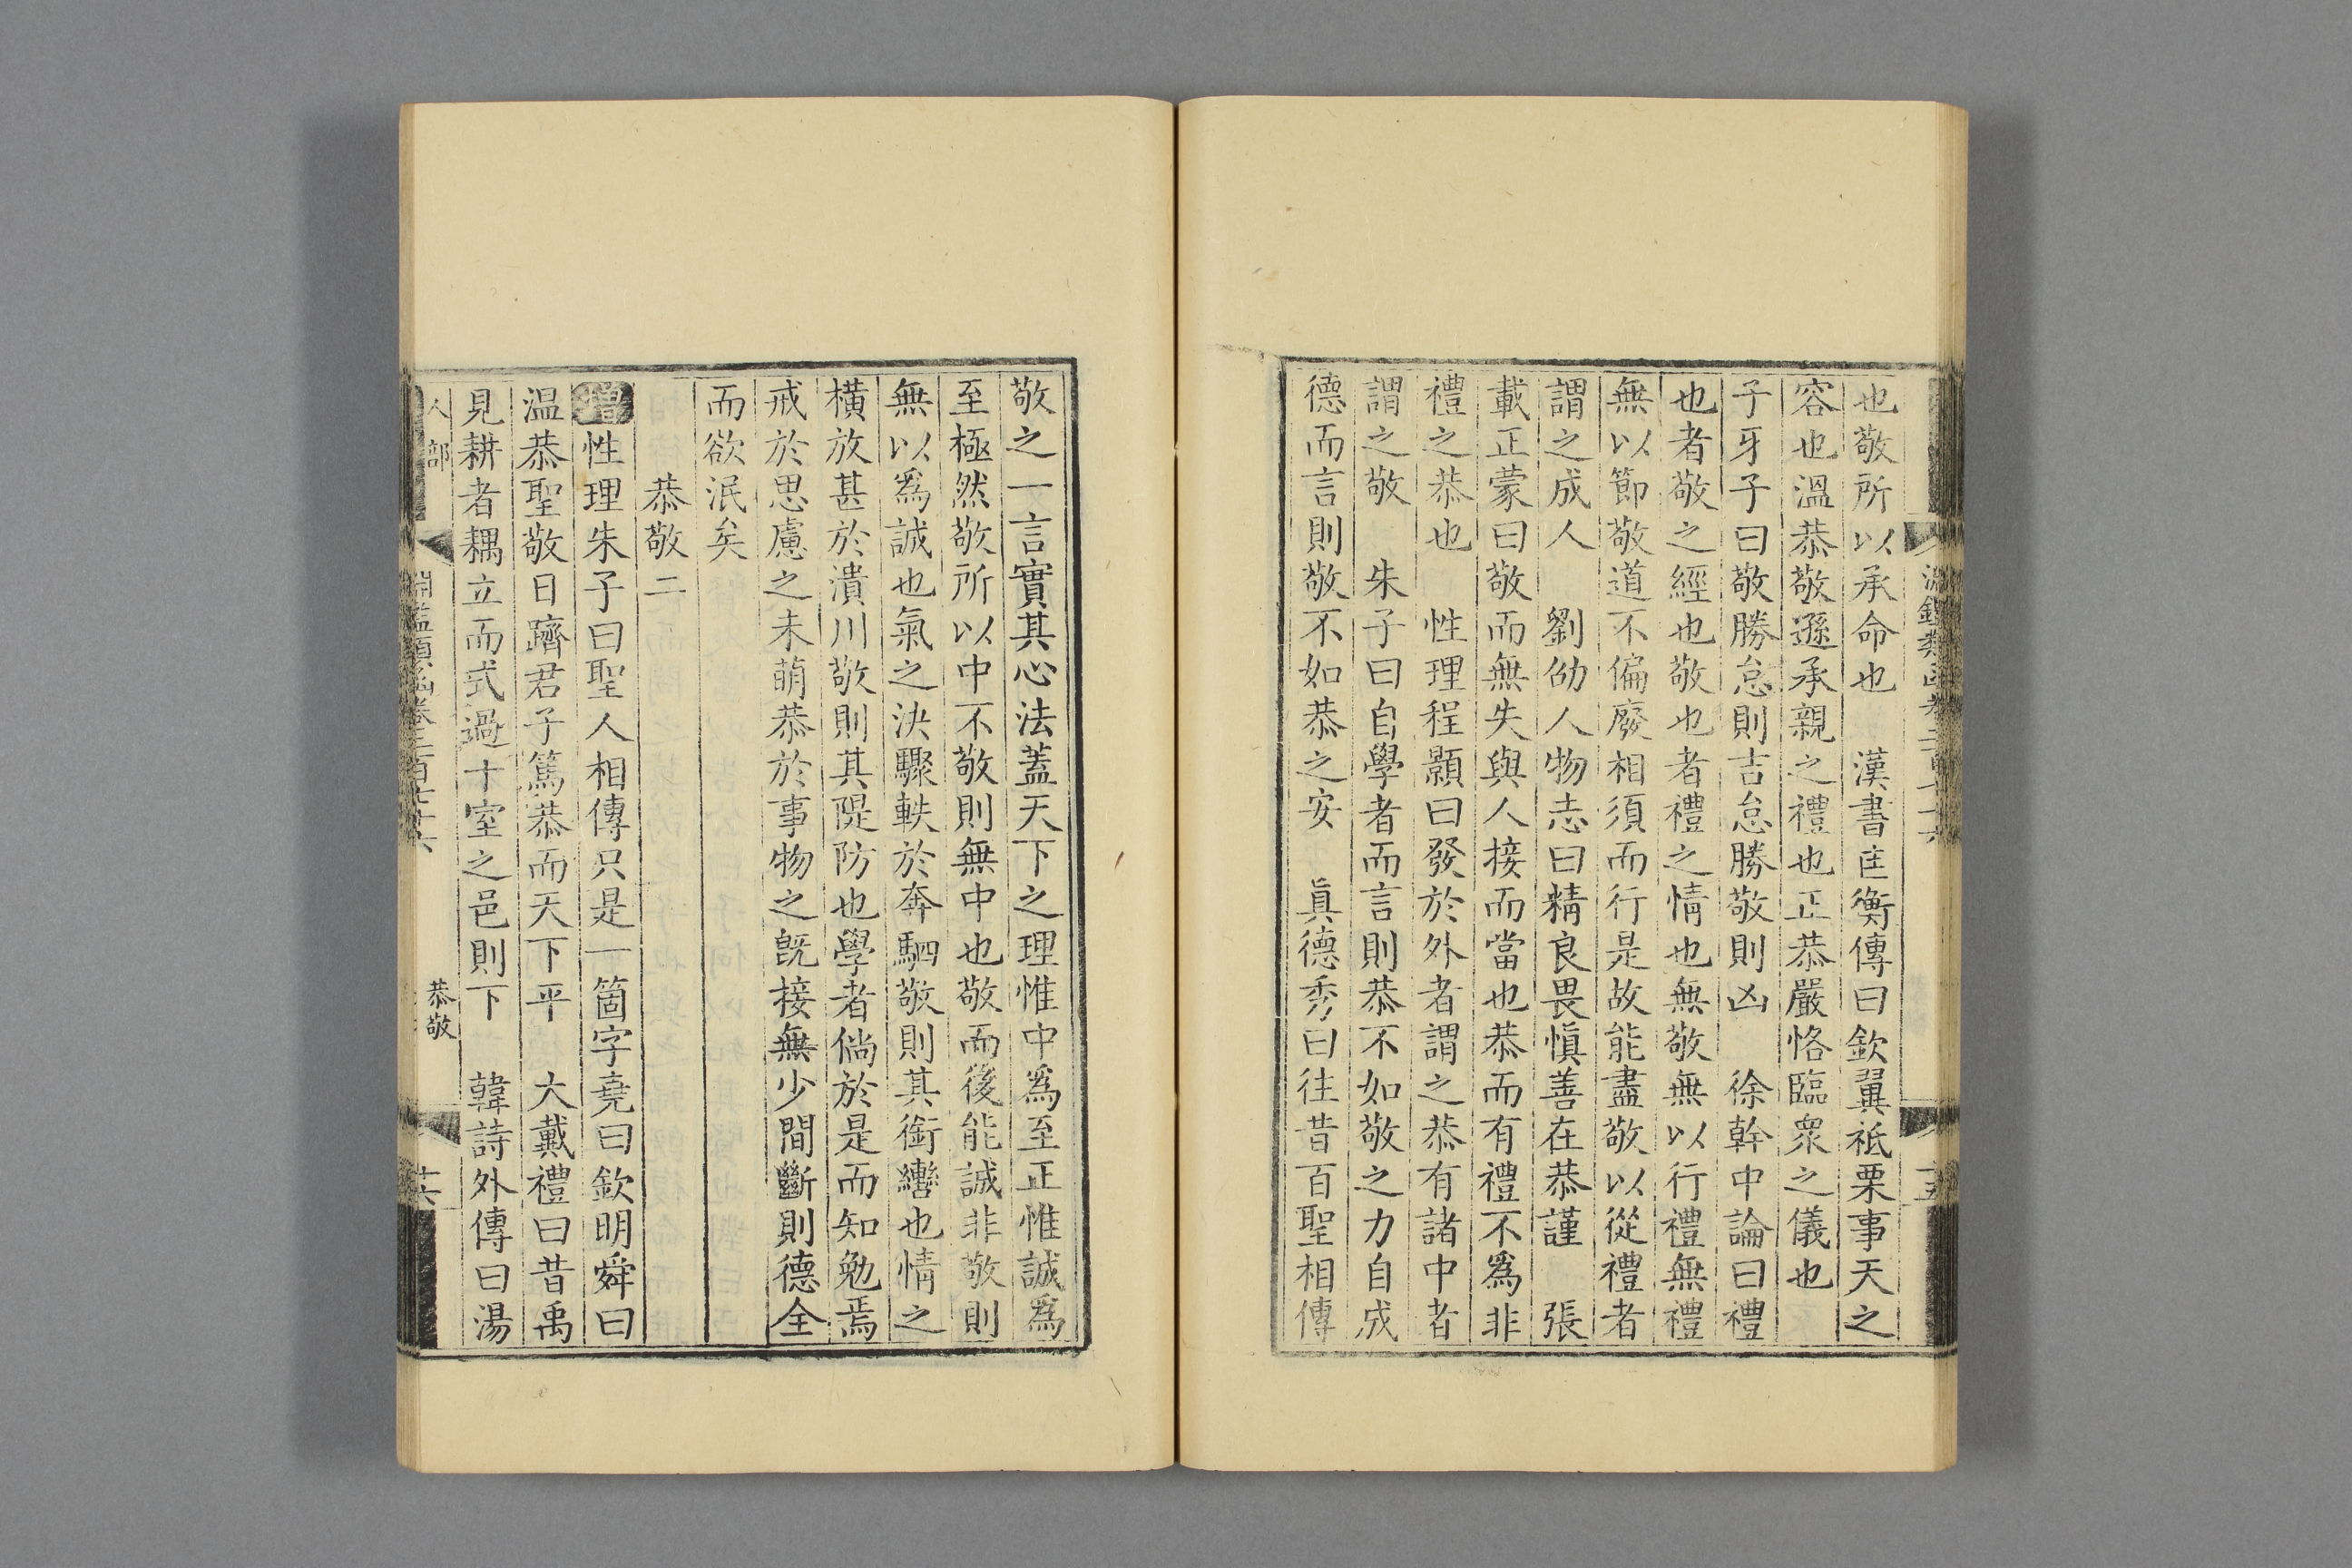 也敬所以承命也　漢書匡衡傳曰欽翼祗栗事天之
容也溫恭敬遜承親之禮也正恭嚴恪臨眾之儀也
子牙子曰敬勝怠則吉怠勝敬則凶　徐幹中論曰禮
也者敬之經也敬也者禮之情也無敬無以行禮無禮
無以節敬道不偏廢相須而行是故能盡敬以從禮者
謂之成人　劉劭人物志曰精良畏慎善在恭謹　張
載正蒙曰敬而無失與人接而當也恭而有禮不爲非
禮之恭也　性理程顥曰發於外者謂之恭有諸中者
謂之敬　朱子曰自學者而言則恭不如敬之力自成
德而言則敬不如恭之安　眞德秀曰往昔百聖相傳
敬之一言實其心法蓋天下之理惟中爲至正惟誠爲
至極然敬所以中不敬則無中也敬而後能誠非敬則
無以爲誠也氣之決驟軼於奔駟敬則其銜轡也情之
橫放甚於潰川敬則其隄防也學者倘於是而知勉焉
戒於思慮之未萌恭於事物之旣接無少間斷則德全
而欲泯矣
恭敬二
增性理朱子曰聖人相傳只是一箇字堯曰欽明舜曰
温恭聖敬日躋君子篤恭而天下平　大戴禮曰昔禹
見耕者耦立而式過十室之邑則下　韓詩外傳曰湯
人部
淵鑑類函卷二百七十六
恭敬
十六